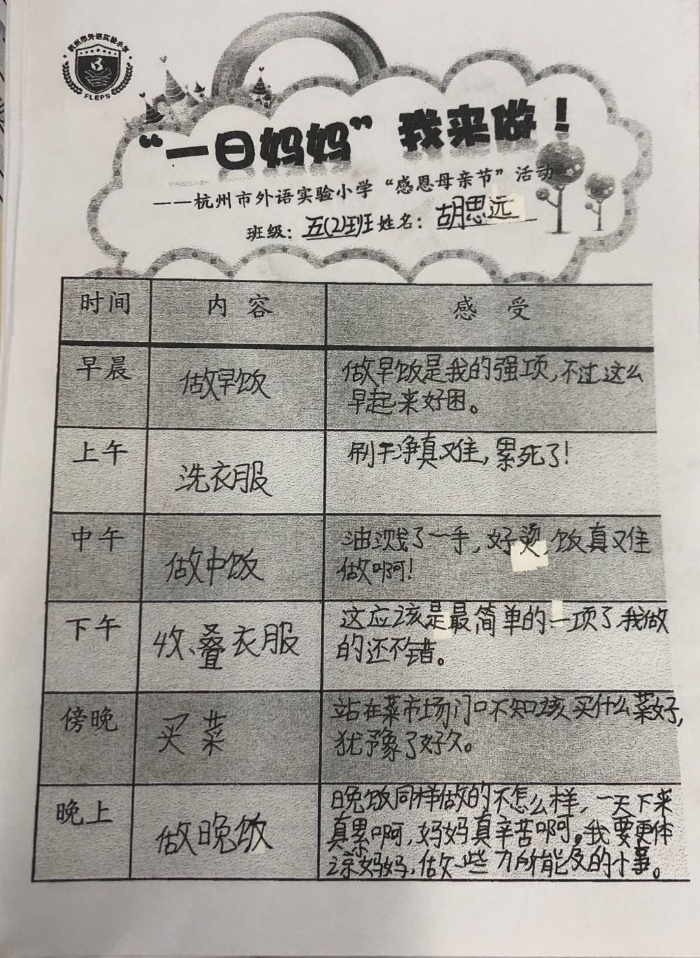 杭州市外语实验小学
FLEPS
“一日妈妈”我来做！
——杭州市外语实验小学“感恩母亲节”活动
班级：五(2)班 姓名：胡思远
时间 内容 感受
早晨 做早饭 做早饭是我的强项，不过这么
早起来好困。
上午 洗衣服 刷干净真难，累死了！
中午 做中饭 油溅了一手，好烫，饭真难
做啊！
下午 收、叠衣服 这应该是最简单的一项了，我做
的还不错。
傍晚 买菜 站在菜市场门口不知该买什么菜好，
犹豫了好久。
晚上 做晚饭 晚饭同样做的不怎么样，一天下来
真累啊，妈妈真辛苦啊。我要更体
凉妈妈，做一些力所能及的小事。